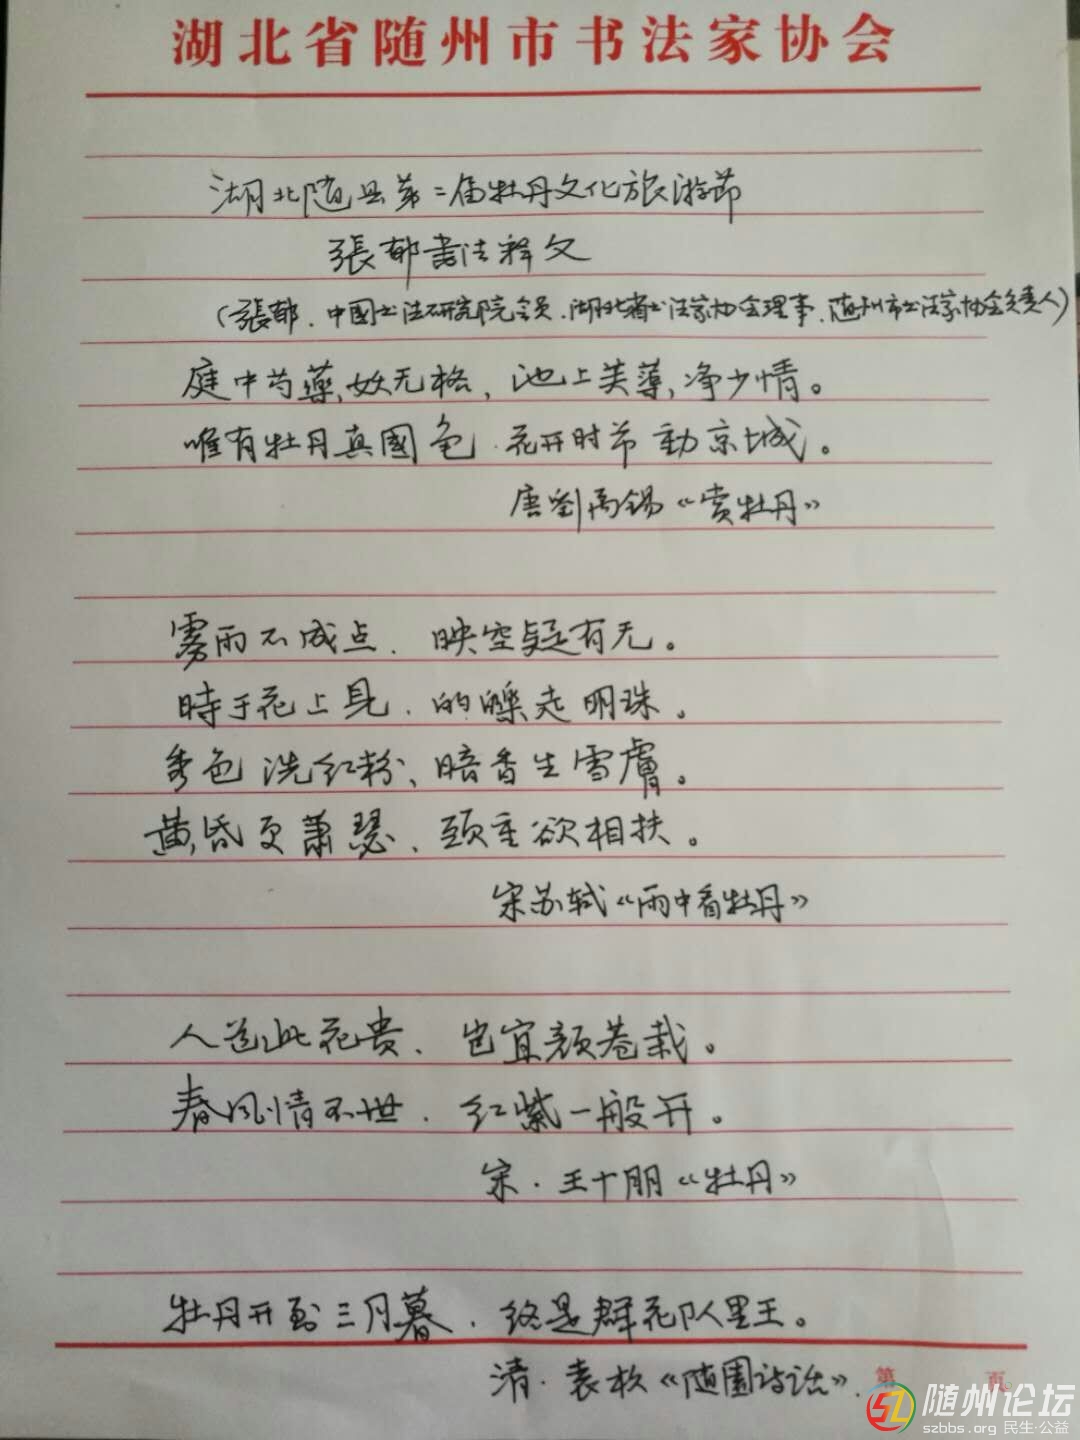 湖北省随州市书法家协会
湖北随县第二届牡丹文化旅游节
張郁書法释文
（張郁．中國书法研究院会员．湖北省书法家协会理事．随州市书法家协会负责人）
庭中芍藥妖无格，池上芙蕖净少情。
唯有牡丹真國色．花开时节動京城。
唐劉禹锡《赏牡丹》
雾雨不成点．映空疑有无。
時于花上見．的皪走明珠。
秀色洗红粉、暗香生雪膚。
黄昏更萧瑟、頭重欲相扶。
宋苏轼《雨中看牡丹》
人道此花贵、岂宜颜巷栽。
春风情不世．红紫一般开。
宋．王十朋《牡丹》
牡丹开到三月暮．终是群花队里王。
清．袁枚《随園诗话》．
第 页
随州论坛
szbbs.org 民生·公益